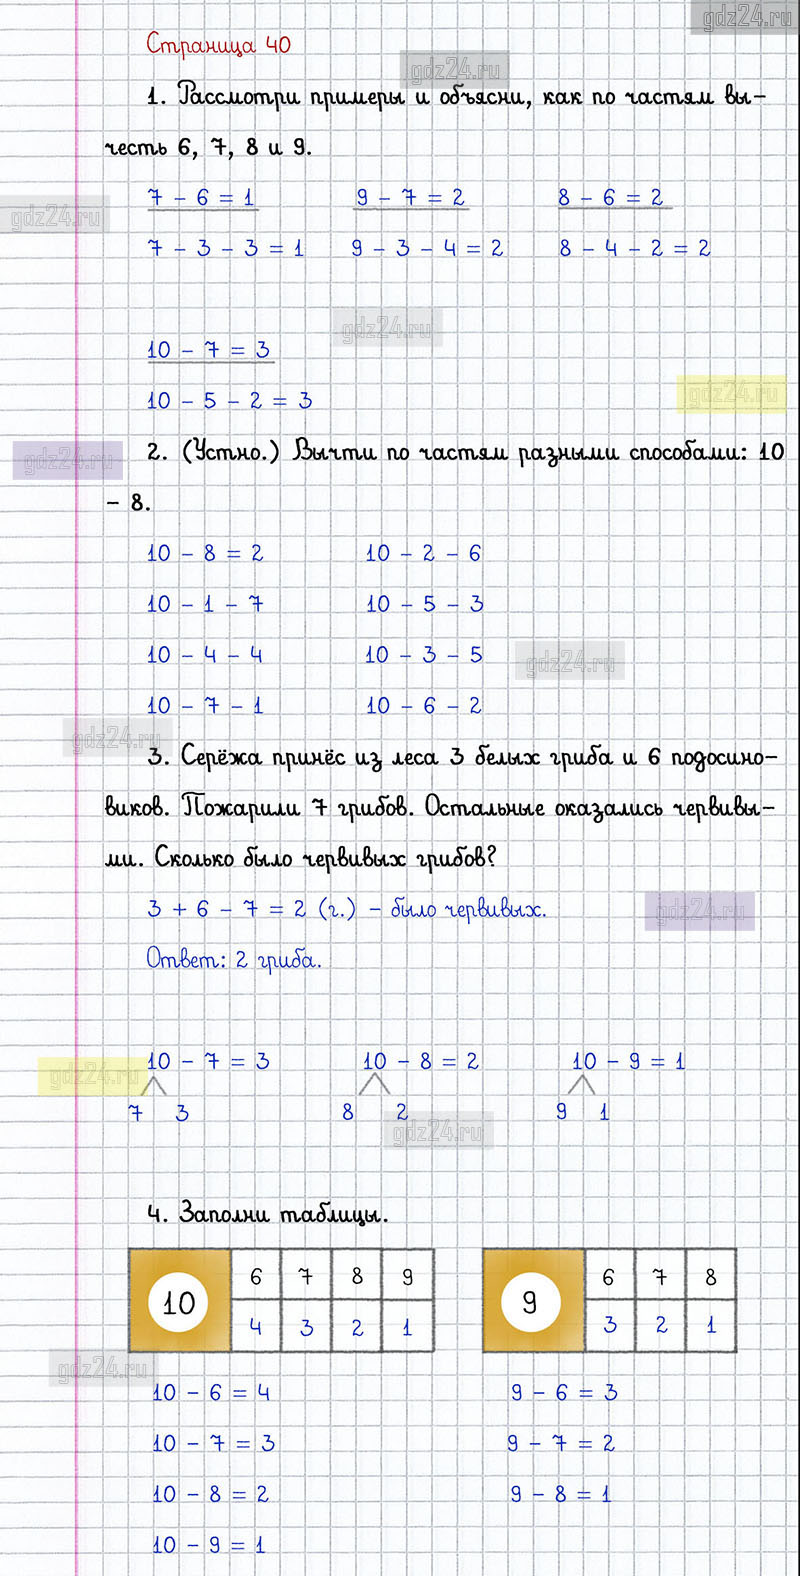 gdz24.ru
Страница 40
gdz24.ru
1. Рассмотри примеры и объясни, как по частям вы-
честь 6, 7, 8 и 9.
7 - 6 = 1 9 - 7 = 2 8 - 6 = 2
gdz24.ru
7 - 3 - 3 = 1 9 - 3 - 4 = 2 8 - 4 - 2 = 2
gdz24.ru
10 - 7 = 3
gdz24.ru
10 - 5 - 2 = 3
2. (Устно.) Вычти по частям разными способами: 10
gdz24.ru
- 8.
10 - 8 = 2 10 - 2 - 6
10 - 1 - 7 10 - 5 - 3
10 - 4 - 4 10 - 3 - 5
gdz24.ru
10 - 7 - 1 10 - 6 - 2
gdz24.ru
3. Серёжа принёс из леса 3 белых гриба и 6 подосино-
виков. Пожарили 7 грибов. Остальные оказались червивы-
ми. Сколько было червивых грибов?
3 + 6 - 7 = 2 (г.) - было червивых.
gdz24.ru
Ответ: 2 гриба.
10 - 7 = 3 10 - 8 = 2 10 - 9 = 1
gdz24.ru
7 3 8 2 9 1
gdz24.ru
4. Заполни таблицы.
6 7 8 9 6 7 8
10 9
4 3 2 1 3 2 1
gdz24.ru
10 - 6 = 4 9 - 6 = 3
10 - 7 = 3 9 - 7 = 2
10 - 8 = 2 9 - 8 = 1
10 - 9 = 1